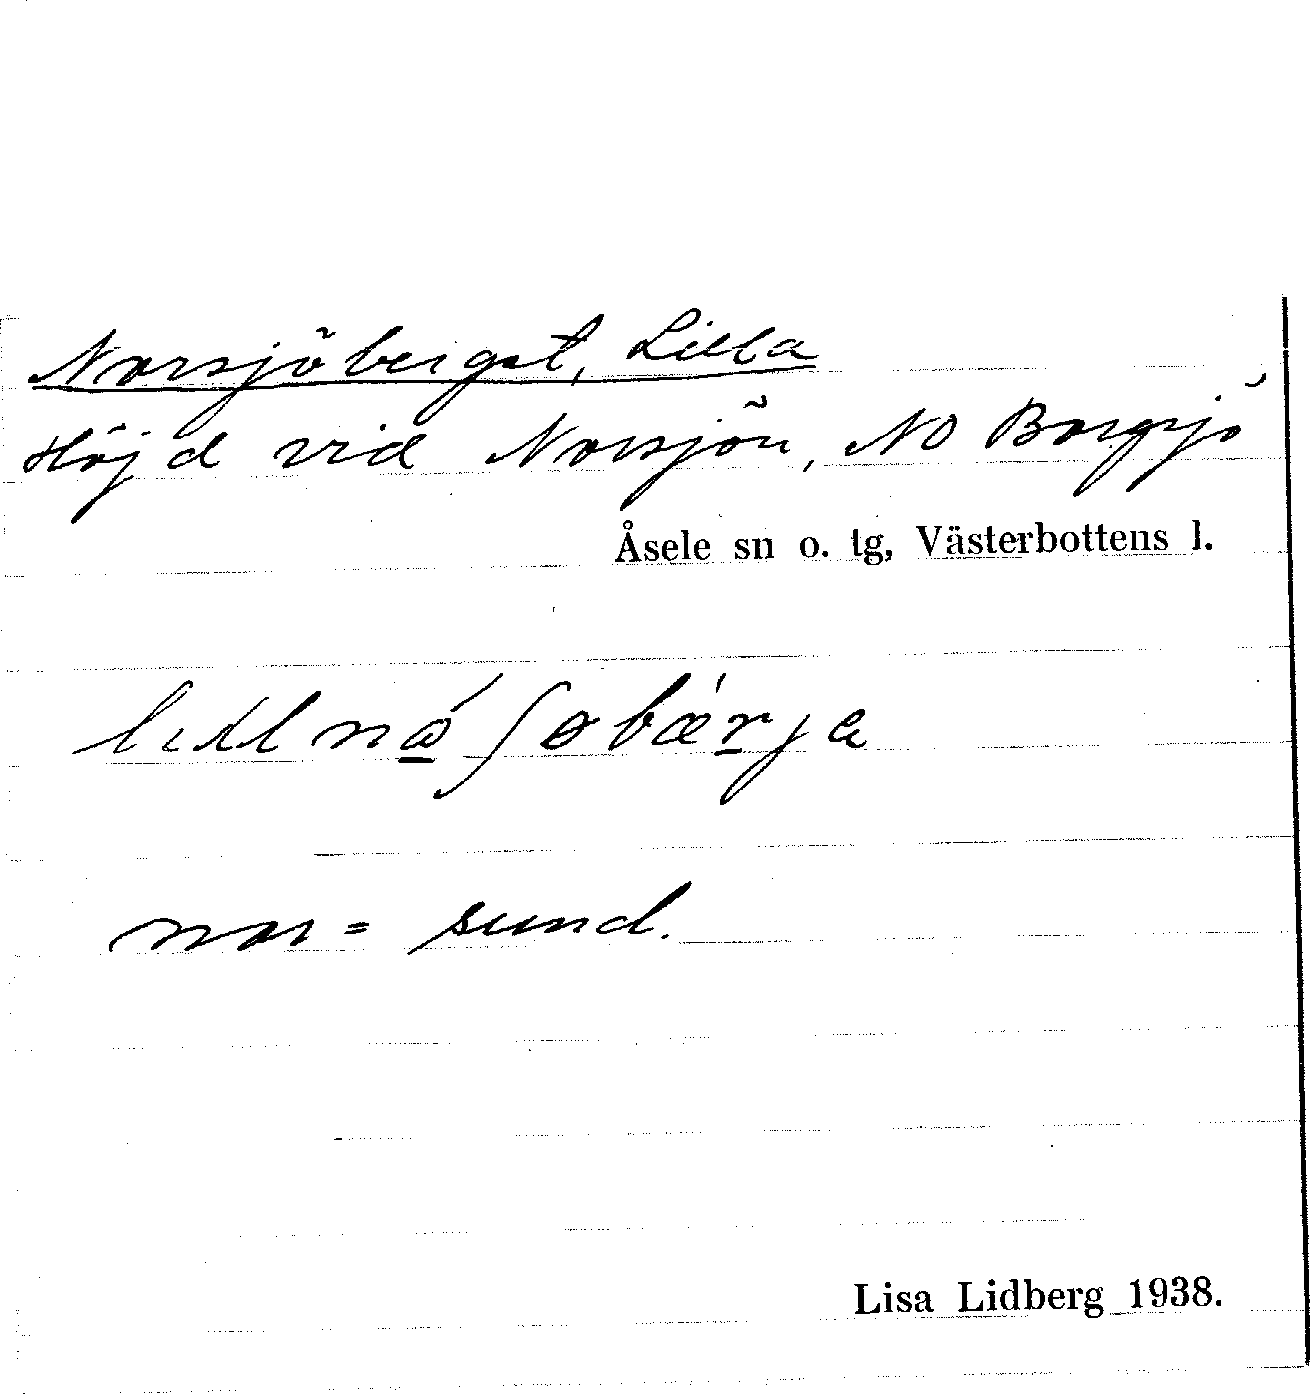 Norsjöberget, Lilla
Höjd vid Norsjön, NO Borgsjö
Åsele sn o. tg, Västerbottens l.
nor = sund.
Lisa Lidberg 1938.